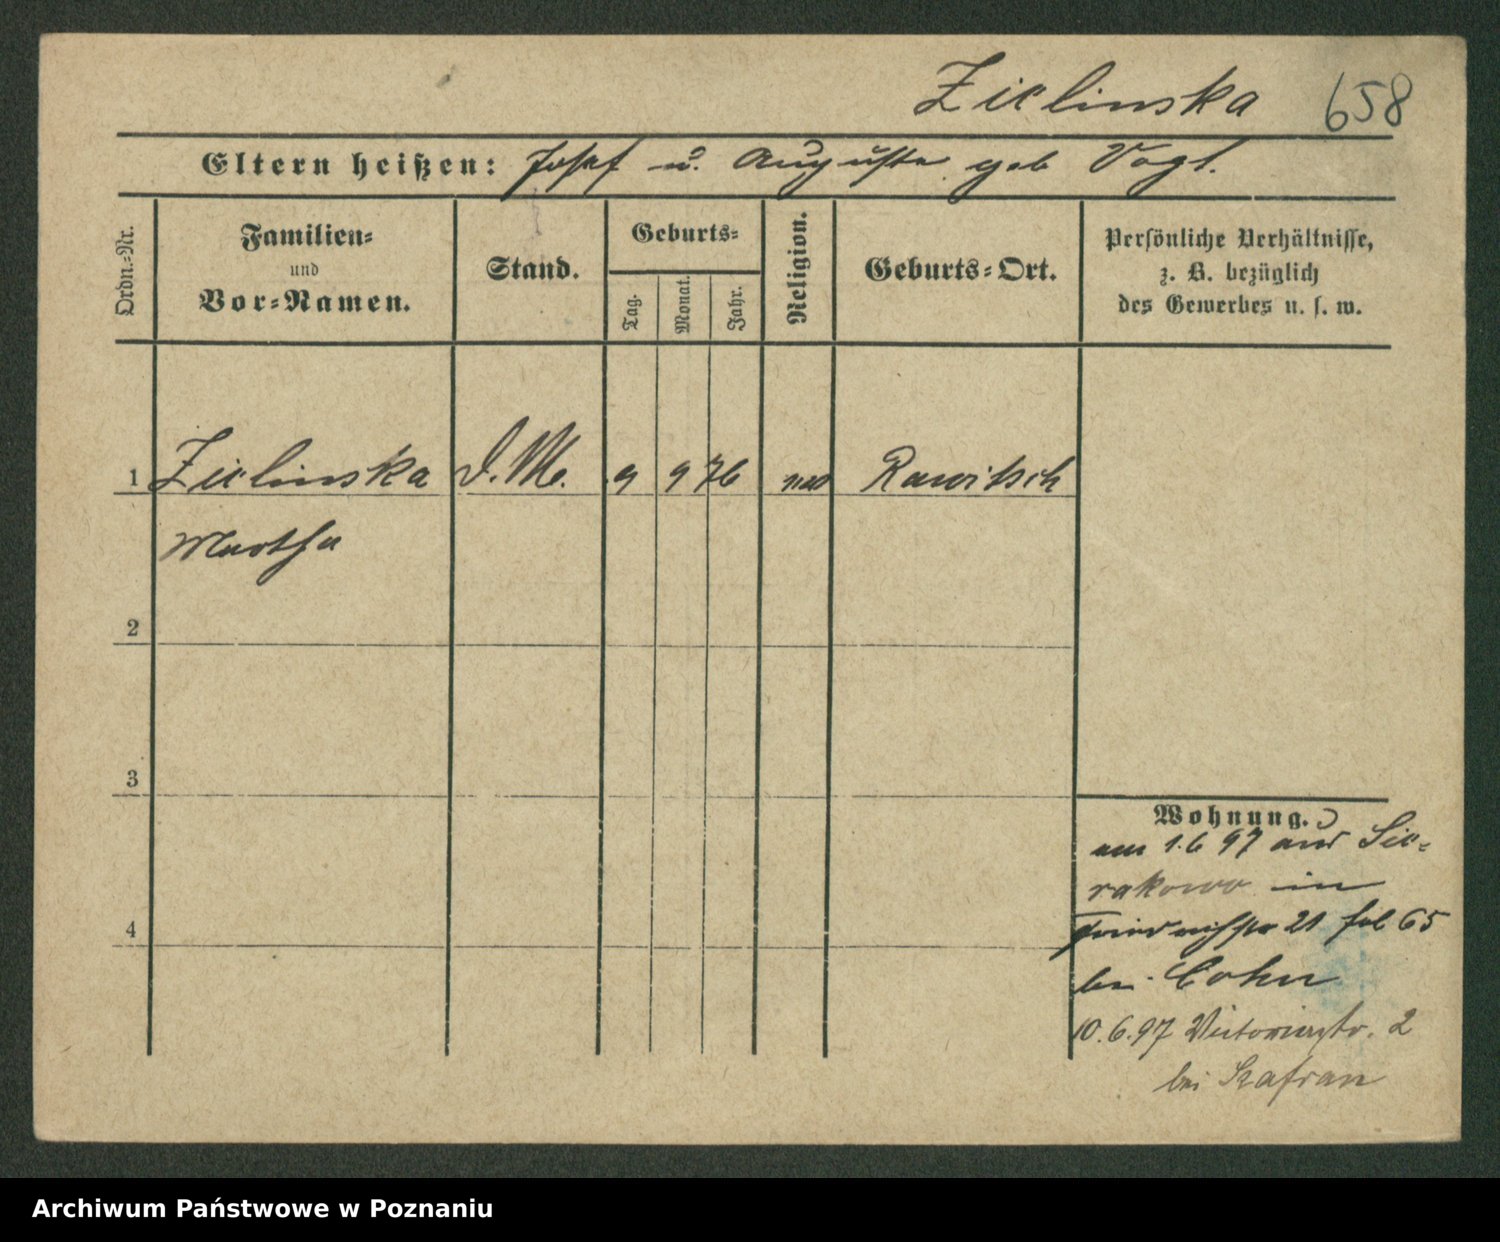 Zielinska 658
Eltern heißen: Josef u. Auguste geb Vogt.
Ordn.=Nr.
Familien=
und
Vor=Namen.
Stand.
Geburts=
Tag.
Monat.
Jahr.
Religion.
Geburts=Ort.
Persönliche Verhältnisse,
z. B. bezüglich
des Gewerbes u. s. w.
1 Zielinska D.M. 9 9 76 Rawitsch
Martha
2
3
4
Wohnung.
am 1.6 97 aus Sie=
rakowo in
21 65
bei Cohn
10.6.97 Victoriastr. 2
bei Szafran
Archiwum Państwowe w Poznaniu